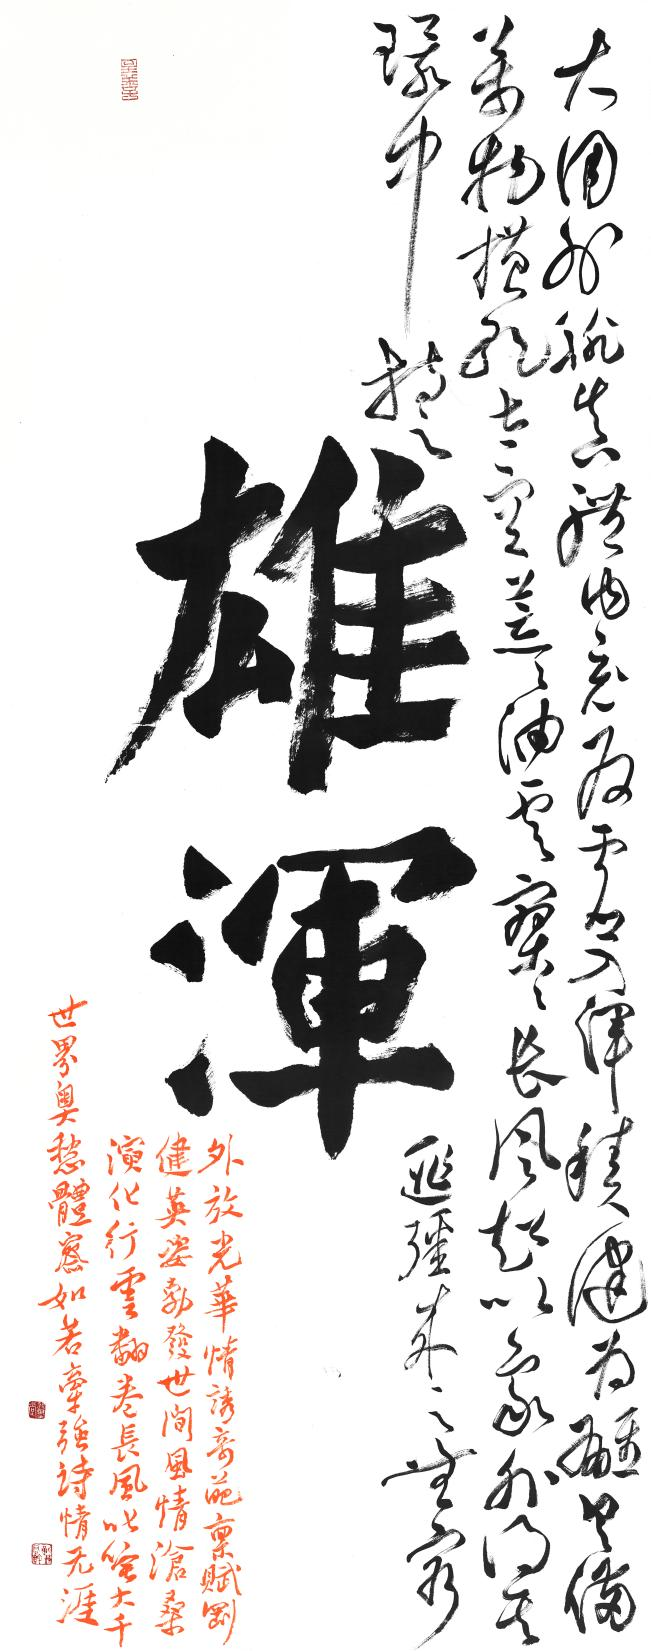 大用外腓真體内充反虛入渾積健為雄具備
萬物橫絕太空荒〻油雲寥〻長風超以象外得其
環中持之匪彊來之無窮
雄渾
外放光華情誘奇葩稟賦剛
健英姿勃發世間風情滄桑
演化行雲翻卷長風叱咤大千
世界奧體察如若牽強詩情无涯